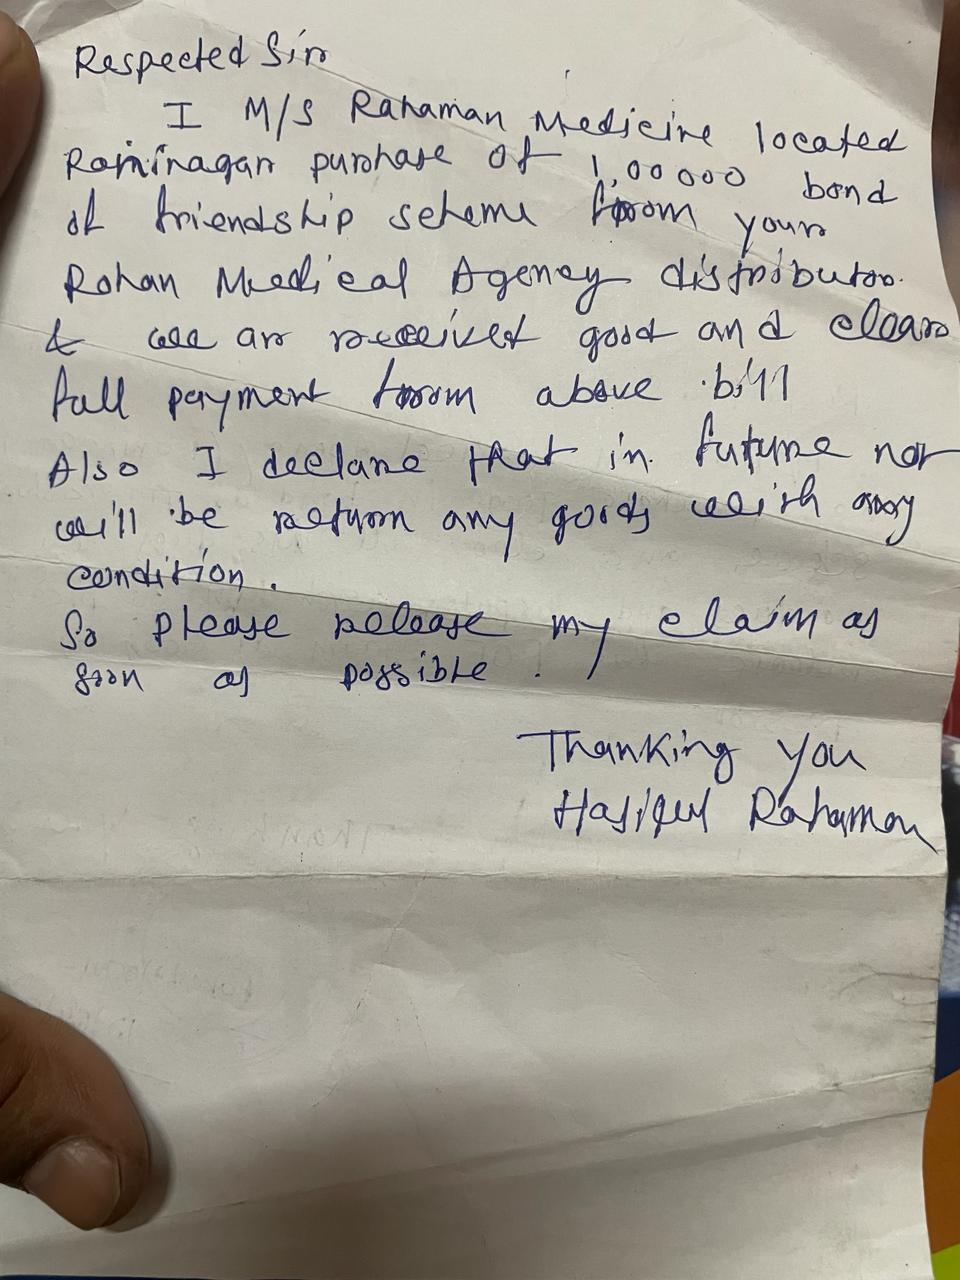 Respected Sir
I M/S Rahaman Medicine located
Raninagar purchase of 1,00000 bond
of friendship scheme from your
Rohan Medical Agency distributor.
& we are received good and clear
full payment from above bill
Also I declare that in future not
will be return any goods with any
condition.
So please release my claim as
soon as possible.
Thanking you
Rahaman